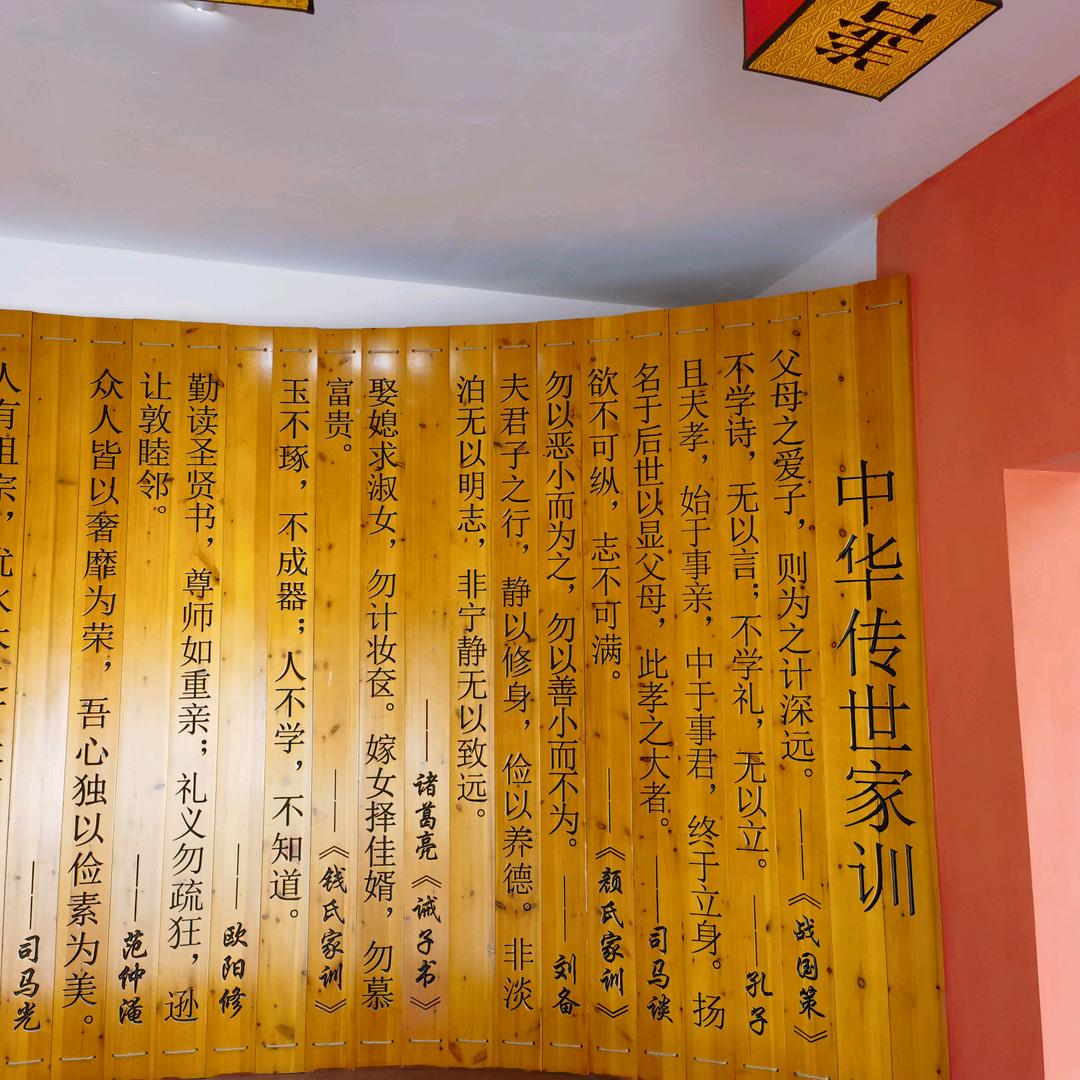 善
中华传世家训
父母之爱子，则为之计深远。——《战国策》
不学诗，无以言；不学礼，无以立。——孔子
且夫孝，始于事亲，中于事君，终于立身。扬
名于后世以显父母，此孝之大者。——司马谈
欲不可纵，志不可满。——《颜氏家训》
勿以恶小而为之，勿以善小而不为。——刘备
夫君子之行，静以修身，俭以养德。非淡
泊无以明志，非宁静无以致远。
——诸葛亮《诫子书》
娶媳求淑女，勿计妆奁。嫁女择佳婿，勿慕
富贵。——《钱氏家训》
玉不琢，不成器；人不学，不知道。
——欧阳修
勤读圣贤书，尊师如重亲；礼义勿疏狂，逊
让敦睦邻。——范仲淹
众人皆以奢靡为荣，吾心独以俭素为美。
——司马光
人有祖宗，犹水木